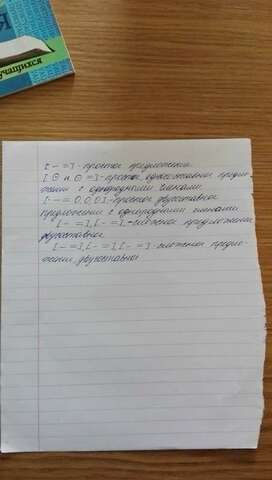 Я
учащихся
[ - = ] - простое предложение.
[ O и O = ] - простое, односоставное предло-
жение с однородными членами.
[ - = O, O, O ] - простое двусоставное
предложение с однородными членами
[ - = ], [ - = ] - сложное предложение
двусоставное
[ - = ], [ - = ], [ - = ] - сложное предло-
жение, двусоставное